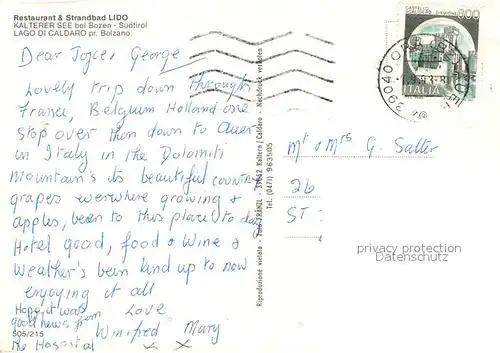 Restaurant & Strandbad LIDO
KALTERER SEE bei Bozen - Südtirol
LAGO DI CALDARO pr. Bolzano
Dear Joyce, George
Lovely trip down through
France, Belgium Holland one
stop over then down to Auer
in Italy in the Dolomiti
Mountain's its beautiful COUNTRY
grapes everwhere growing &
apples, been to this place to day
Hotel good, food & wine &
weather's been kind up to now
enjoying it all
Hope it was Love
good news from Winifred Mary
the Hospital x x
505/215
Riproduzione vietata - Foto FRÄNZL - 39052 Kaltern/Caldaro - Nachdruck verboten
Tel. (0471) 963505
800
ITALIA
39040
Mr & Mrs G. Salter
26
ST:
privacy protection
Datenschutz